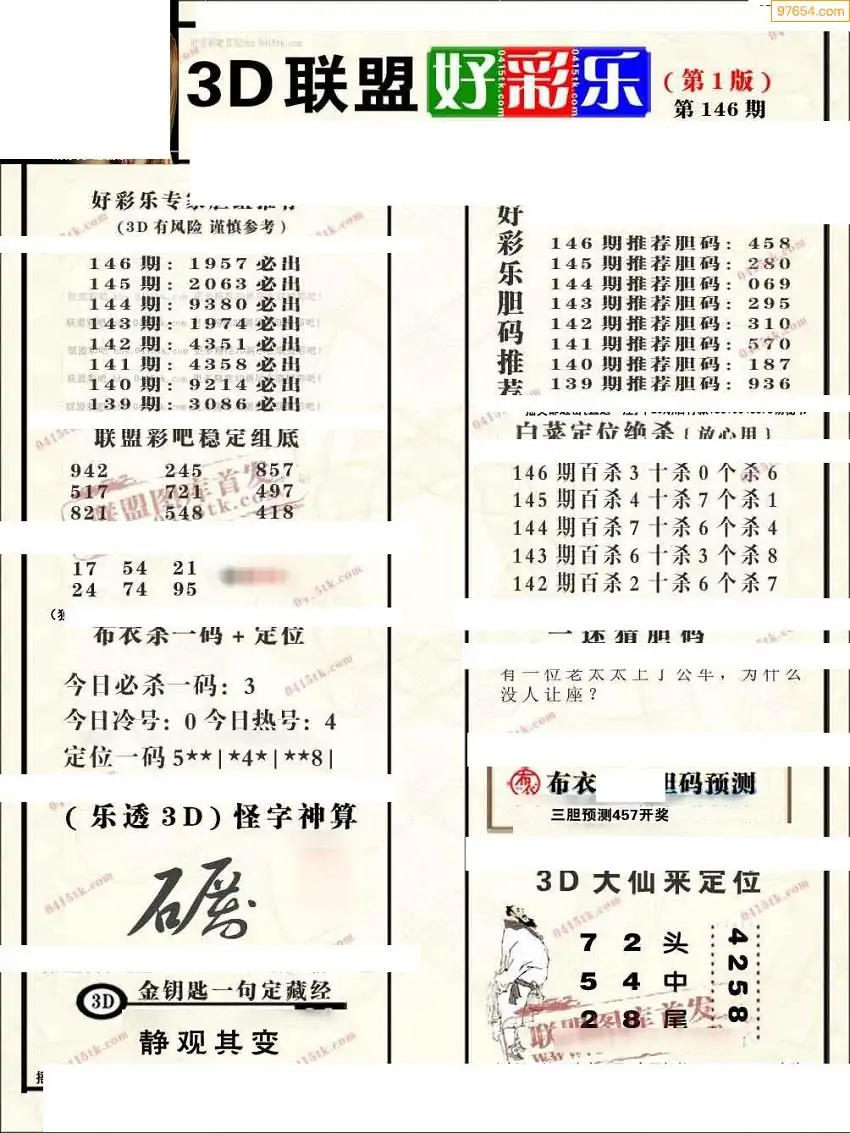 97654.com
3D联盟好彩乐(第1版)
第146期
(3D有风险 谨慎参考)
146期:1957必出
145期:2063必出
144期:9380必出
143期:1974必出
142期:4351必出
141期:4358必出
140期:9214必出
139期:3086必出
联盟彩吧稳定组底
942 245 857
517 721 497
821 548 418
17 54 21
24 74 95
布衣杀一码+定位
今日必杀一码:3
今日冷号:0 今日热号:4
定位一码5**|*4*|**8|
(乐透3D)怪字神算
3D 金钥匙一句定藏经
静观其变
好彩乐胆码推荐
146期推荐胆码:458
145期推荐胆码:280
144期推荐胆码:069
143期推荐胆码:295
142期推荐胆码:310
141期推荐胆码:570
140期推荐胆码:187
139期推荐胆码:936
白菜定位绝杀{放心用}
146期百杀3十杀0个杀6
145期百杀4十杀7个杀1
144期百杀7十杀6个杀4
143期百杀6十杀3个杀8
142期百杀2十杀6个杀7
一迷猜胆码
有一位老太太上了公车,为什么
没人让座?
布衣 胆码预测
三胆预测457开奖
3D大仙来定位
7 2 头
5 4 中
2 8 尾
4258